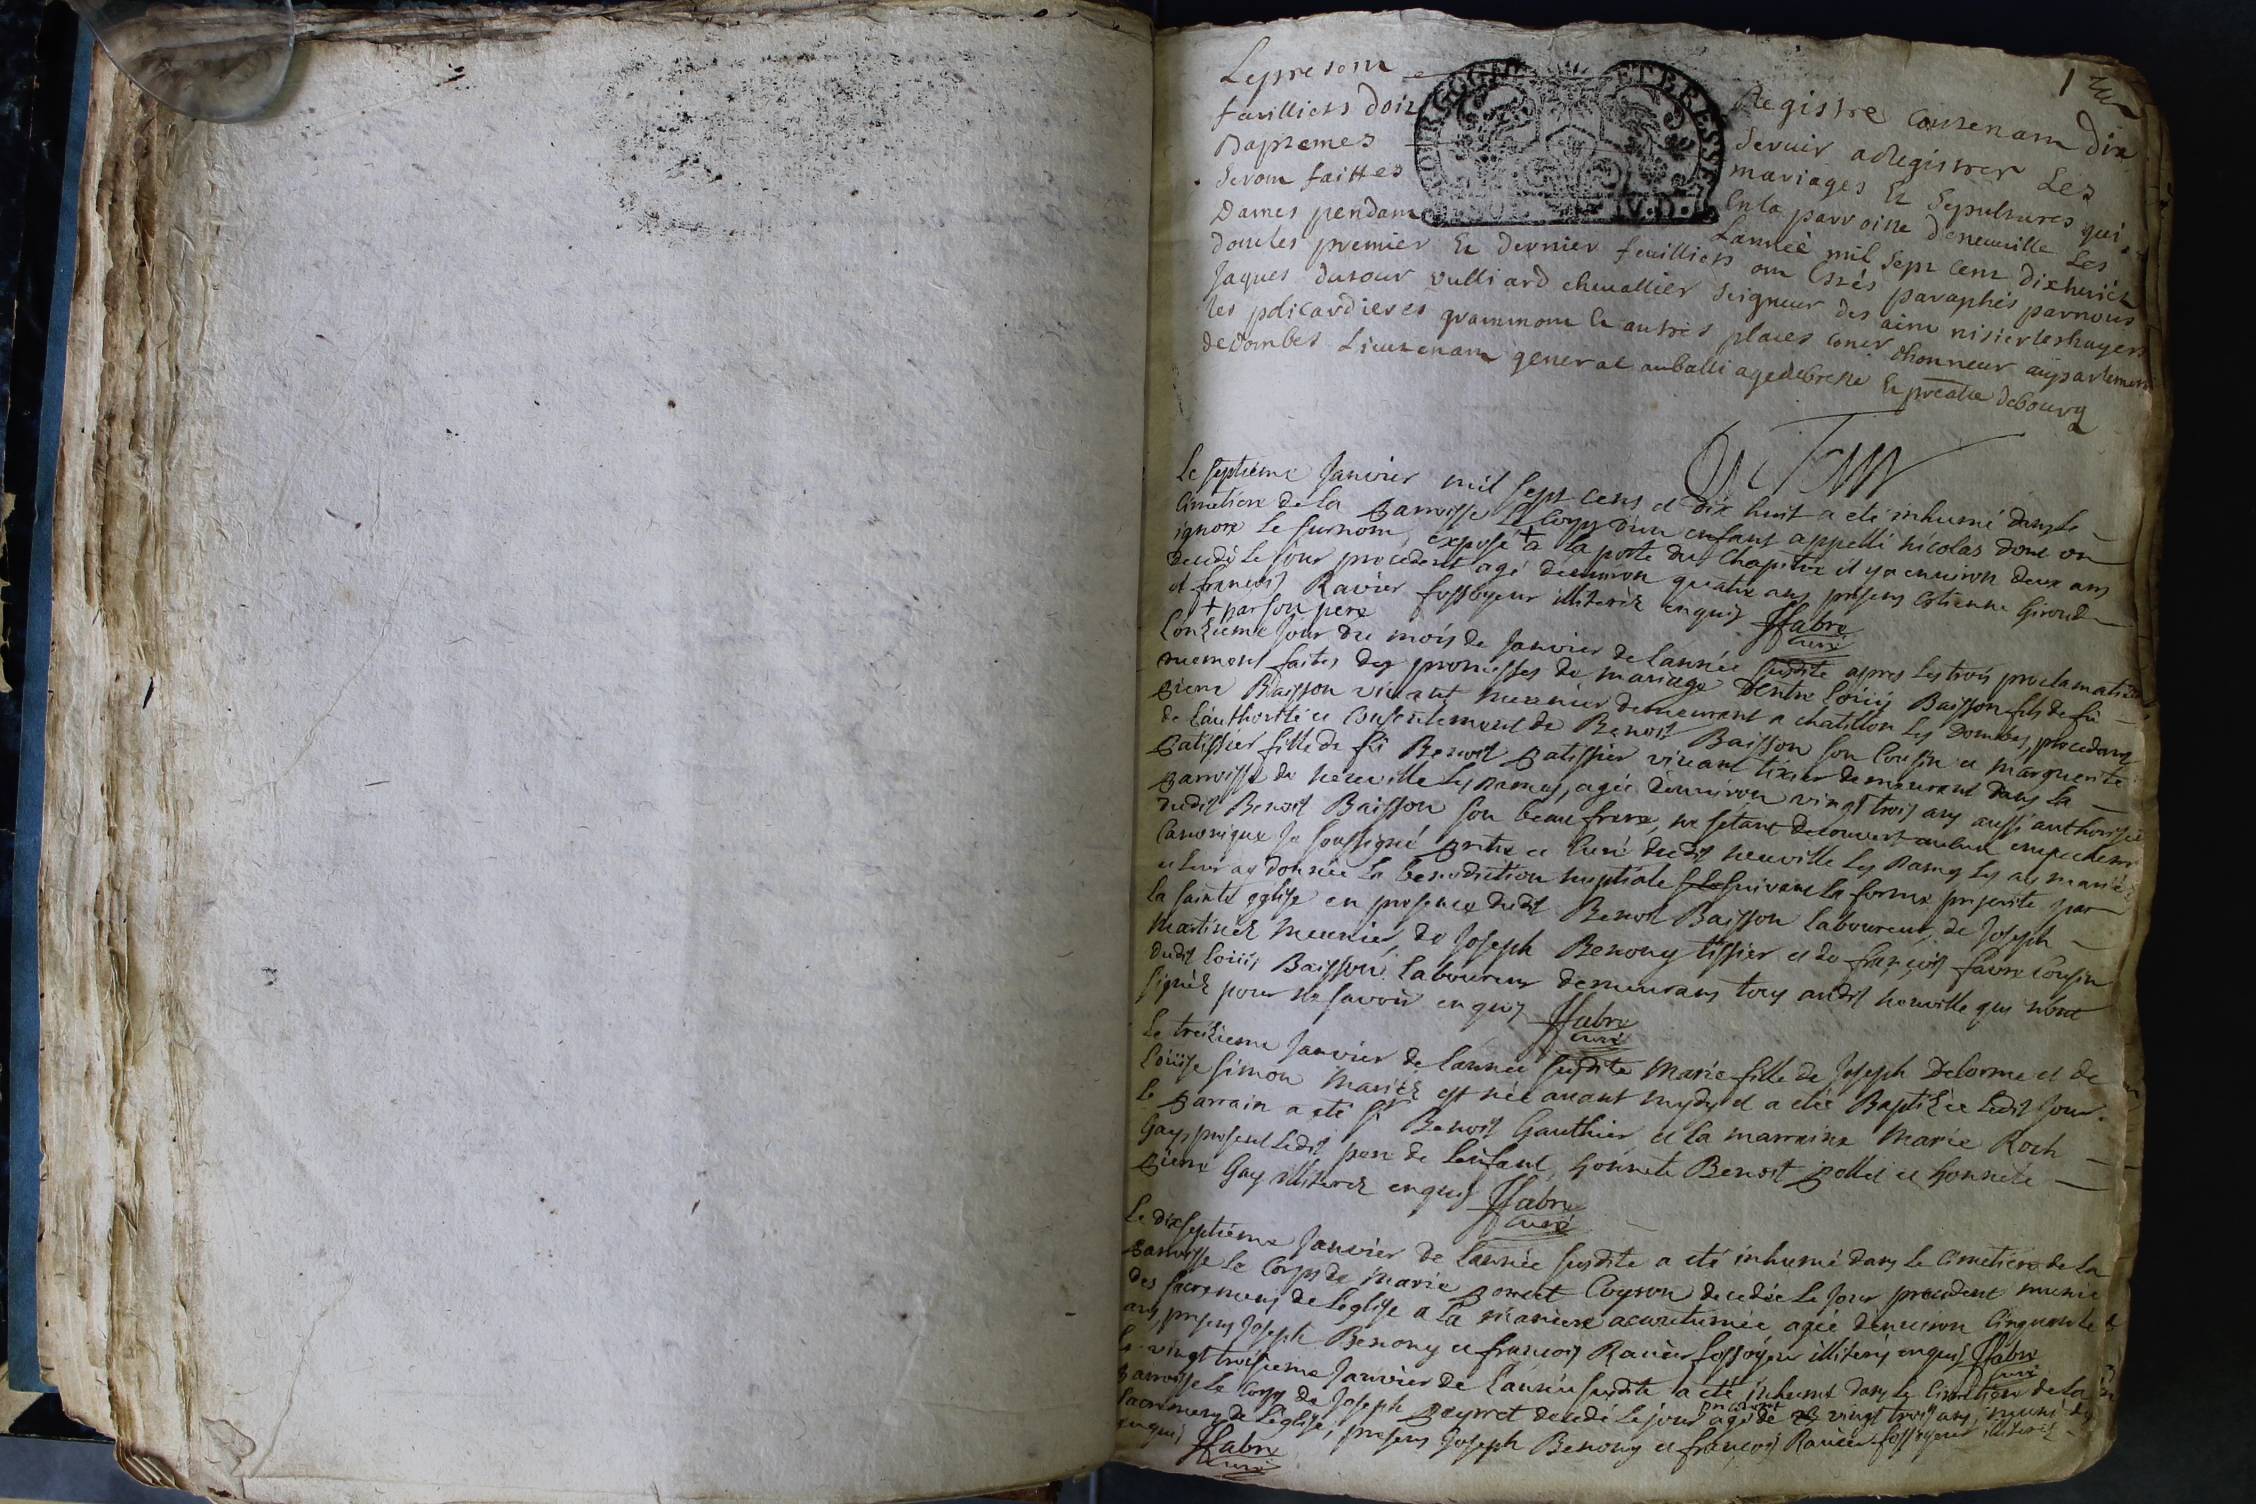 1
Le present Registre contenant dix
feuilliets doit servir a Registrer Les
Baptemes mariages Et Sepultures qui
seront faittes En la parroisse de neuville Les
Dames pendant L'année mil sept cent dix huict
dont les premier Et dernier feuilliets ont Estés paraphés par nous
Jaques dutour vulliard chevallier Seigneur des aim nisier les huyers
les policardieres grammont Et autres places coner d'honneur au parlement
de dombes Lieutenant general au balliage de bresse Et preal de bourg
Du Tour
GG. BOURG ET BRESSE
IV. D.
Le septieme Janvier mil sept cens et dix huit a eté inhumé dans le
Cimetiere de la Parroisse le Corps d'un enfant appellé Nicolas dont on
ignore le surnom, exposé + a la porte du Chapitre il y a environ deux ans
decedé le jour precedent agé d'environ quatre ans presens Estienne Giroud
et francois Ravier fossoyeur illiterés enquis ffabre
+ par son pere curé
L'onzieme jour du mois de Janvier de l'année susdite apres les trois proclamations
 faites des promesses de mariage d'entre Loüis Baisson fils de fû
Pierre Baisson vivant meunier demeurant a chatillon les Dombes, procedant
de l'authorité et consentement de Benoit Baisson son Cousin et Marguerite
Patissier fille de fû Benoist Patissier vivant tixier demeurant dans la
Parroisse de Neuville les Dames, agée d'environ vingt trois ans aussi authorisée
dudit Benoist Baisson son beau frere, ne s'etant decouvert aucun empechement
Canonique Je soussigné Pretre et Curé dudit Neuville les Dames les ay mariés
et leur ay donnée la benediction nuptiale suivant la forme prescrite par
la sainte eglise en presence dudit Benoist Baisson laboureur, de Joseph
Martinet Meunier, de Joseph Benony tissier et de francois favre Cousin
dudit Loüis Baisson laboureur demeurans tous audit Neuville qui n'ont
signés pour ne savoir enquis ffabre
curé
Le treizieme Janvier de l'année susdite Marie fille de Joseph Delorme et de
Loüise Simon Mariés est née avant mydy et a eté Baptizée ledit jour.
Le Parrain a eté Sr Benoist Gauthier et la marraine Marie Roch
Gay, present ledit pere de l'enfant, honnete Benoist Pollet et honnete
Pierre Gay illiterés enquis ffabre
curé
Le dixseptieme Janvier de l'année susdite a eté inhumé dans le Cimetiere de la
Parroisse le Corps de Marie Coyron decedée le jour precedent munie
des sacremens de l'eglise a la maniere acoutumée agée d'environ Cinquante
ans, presens Joseph Benony et francois Ravier fossoyeur illiterés enquis ffabre
curé
Le vingt troisieme Janvier de l'année susdite a eté inhumé dans le Cimetiere de la
Parroisse le Corps de Joseph Peyret decedé le jour precedent agé de vingt trois ans, muni des
sacremens de l'eglise, presens Joseph Benony et francois Ravier fossoyeur illiterés
enquis ffabre
curé